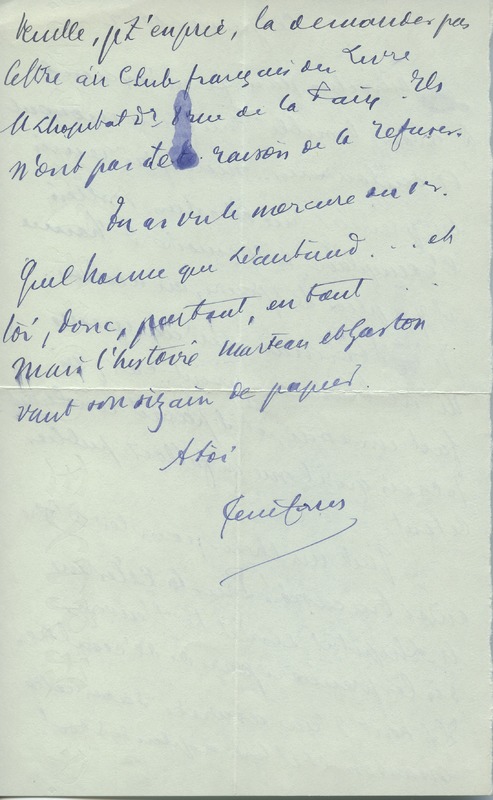 Veuille, je t'en prie, la demander par
lettre au Club français du Livre
8 rue de la Paix. Ils
n'ont pas de raison de la refuser.
Tu as vu le mercure du
Quel homme que Léautaud... et
toi, donc, partout, en tout...
Mais l'histoire Marteau et Gaston
vaut son sizain de papier.
A toi